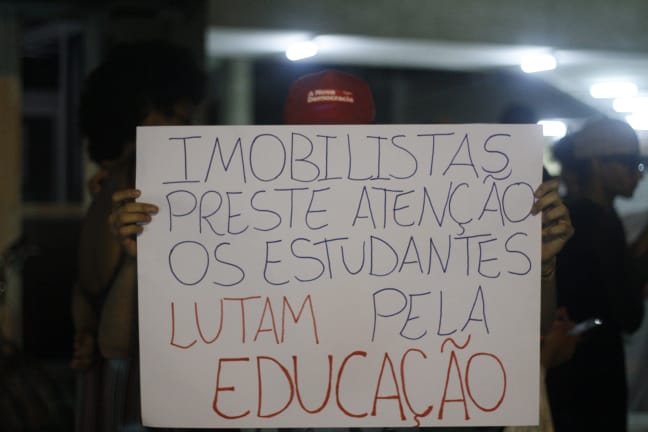 A Nova
Democracia
IMOBILISTAS
PRESTE ATENÇÃO
OS ESTUDANTES
LUTAM PELA
EDUCAÇÃO